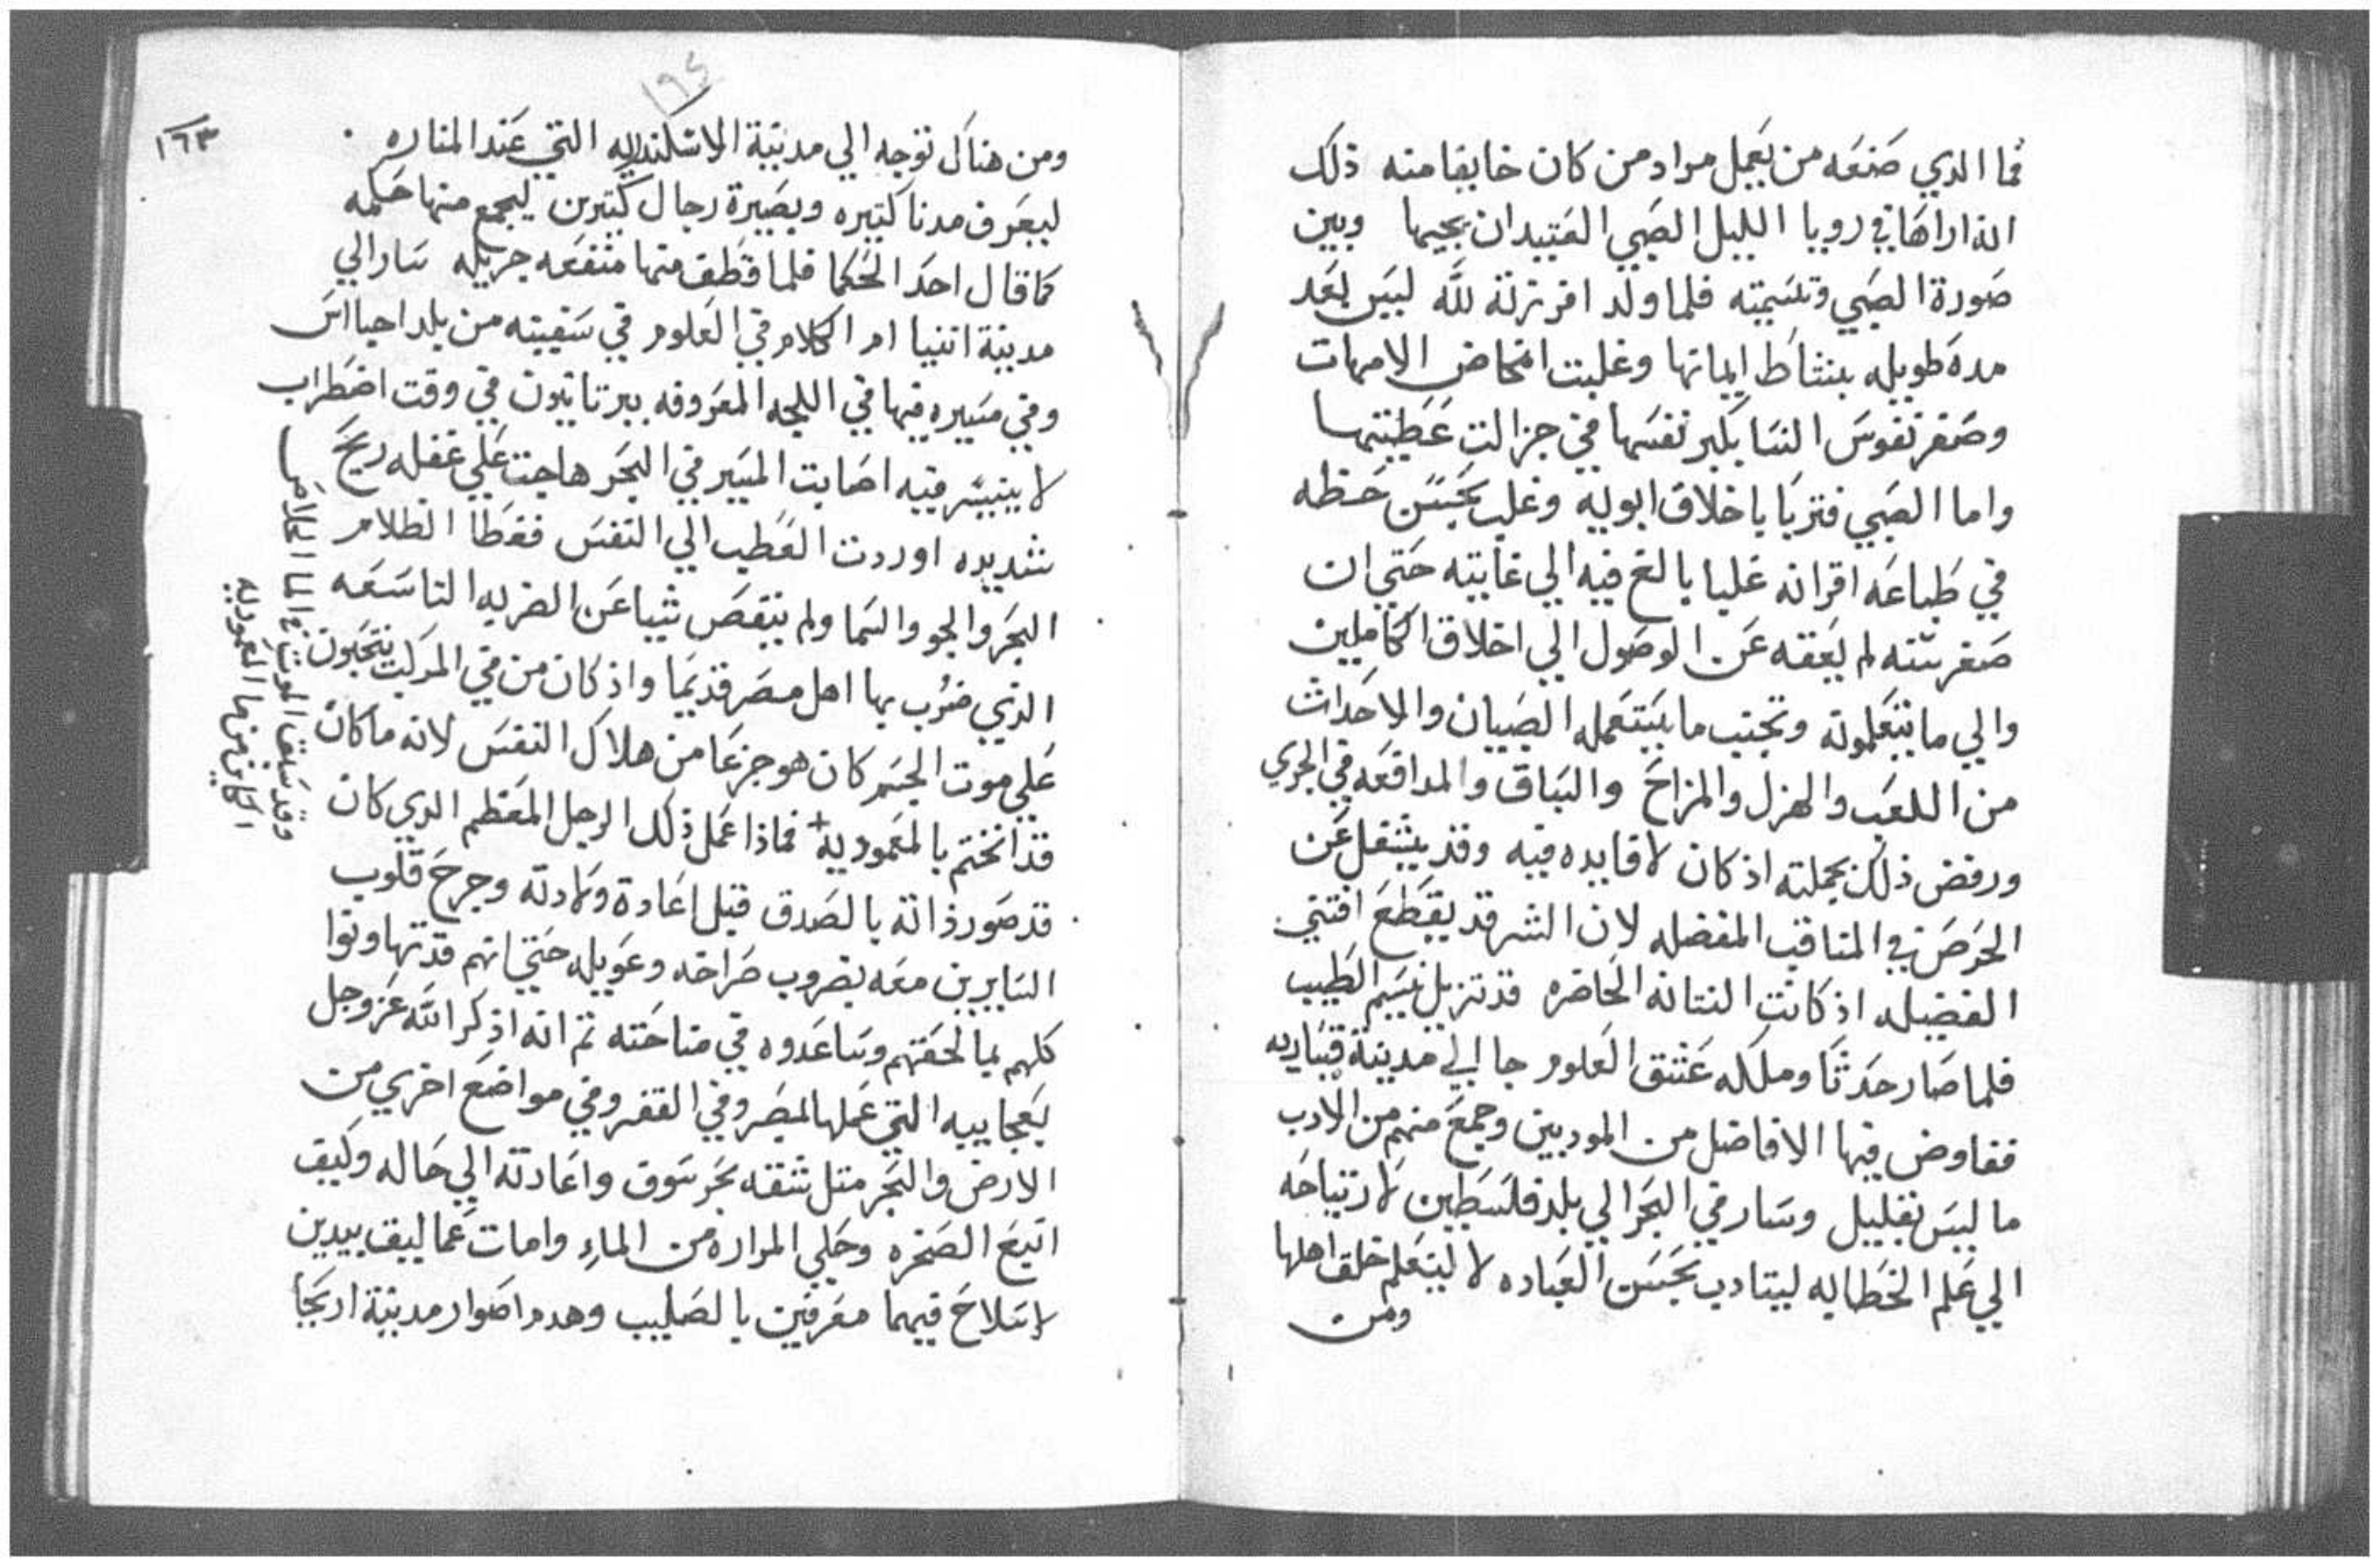 فما الدي صنعه من يعمل مراد من كان خايفا منه ذلك
الذا اراها في رويا الليل الصبي العتيد ان يجيها وبين
صورة الصبي وتسميته فلما ولد افرزته لله ليس بعد
مدة طويله بنشاط ايمانها وغلبت امخاض الامهات
وصغر نفوس النسا بكبر نفسها في جزالت عطيتها
واما الصبي فتربا باخلاق ابويه وغلب بحسن حظه
في طباعه اقرانه غلبا بالغ فيه الي غايته حتي ان
صغر سنه لم يعقه عن الوصول الي اخلاق الكاملين
والي ما يتعلمونه وتجنب ما يستعمله الصبيان والاحداث
من اللعب والهزل والمزاح والسباق والمدافعه في الجري
ورفض ذلك بجملته اذ كان لا فايده فيه وقد يشغل عن
الحرص في المناقب المفضله لان الشر قد يقطع افتني
الفضيله اذ كانت النتانه الحاضره قد تزيل نسيم الطيب
فلما صار حدثا وملكه عشق العلوم جا الي مدينة قيساريه
ففاوض فيها الافاضل من المودبين وجمع منهم من الادب
ما ليس بقليل وسار في البحر الي بلد فلسطين لارتياحه
الي علم الخطابه ليتادب بحسن العباده لا ليتعلم خلق اهلها
ومن
١٦٤
١٦٣
ومن هناك توجه الي مدينة الاسكندريه التي عند المناره
ليعرف مدنا كتيره وبصيرة رجال كتيرين ليجمع منها حكمه
كما قال احد الحكما فلما قطف منها منفعه جزيله سار الي
مدينة اتنيا ام الكلام في العلوم في سفينه من بلد احيااس
وفي مسيره فيها في اللجه المعروفه ببرتانيون في وقت اضطراب
لا يتيسر فيه اصابت المسير في البحر هاجت علي غفله ريح
شديده اوردت العطب الي النفس فغطا الظلام
البحر والجو والسما ولم ينقص شيا عن الضربه التاسعه
الذي ضرب بها اهل مصر قديما واذ كان من في المركب ينتحبون
علي موت الجسم كان هو جزعا من هلاك النفس لانه ما كان
قد انختم بالمعموديه + فماذا عمل ذلك الرجل المعظم الدي كان
قد صور ذاته بالصدق قبل اعادة ولادته وجرح قلوب
السايرين معه بضروب صراخه وعويله حتي انهم قد تهاونوا
كلهم بما لحقهم وساعدوه في مناحته تم انه اذكر الله عز وجل
بعجاييه التي عملها لمصر وفي القفر وفي مواضع اخري من
الارض والبحر متل شقه بحر سوق واعادته الي حاله وكيف
انبع الصخره وحلي المراره من الماء وامات عماليق بيدين
لا سلاح فيهما مغرفين بالصليب وهدم اصوار مدينة اريحا
وقد سلف الموت في الما الماراما
الكاين من ما المعموديه